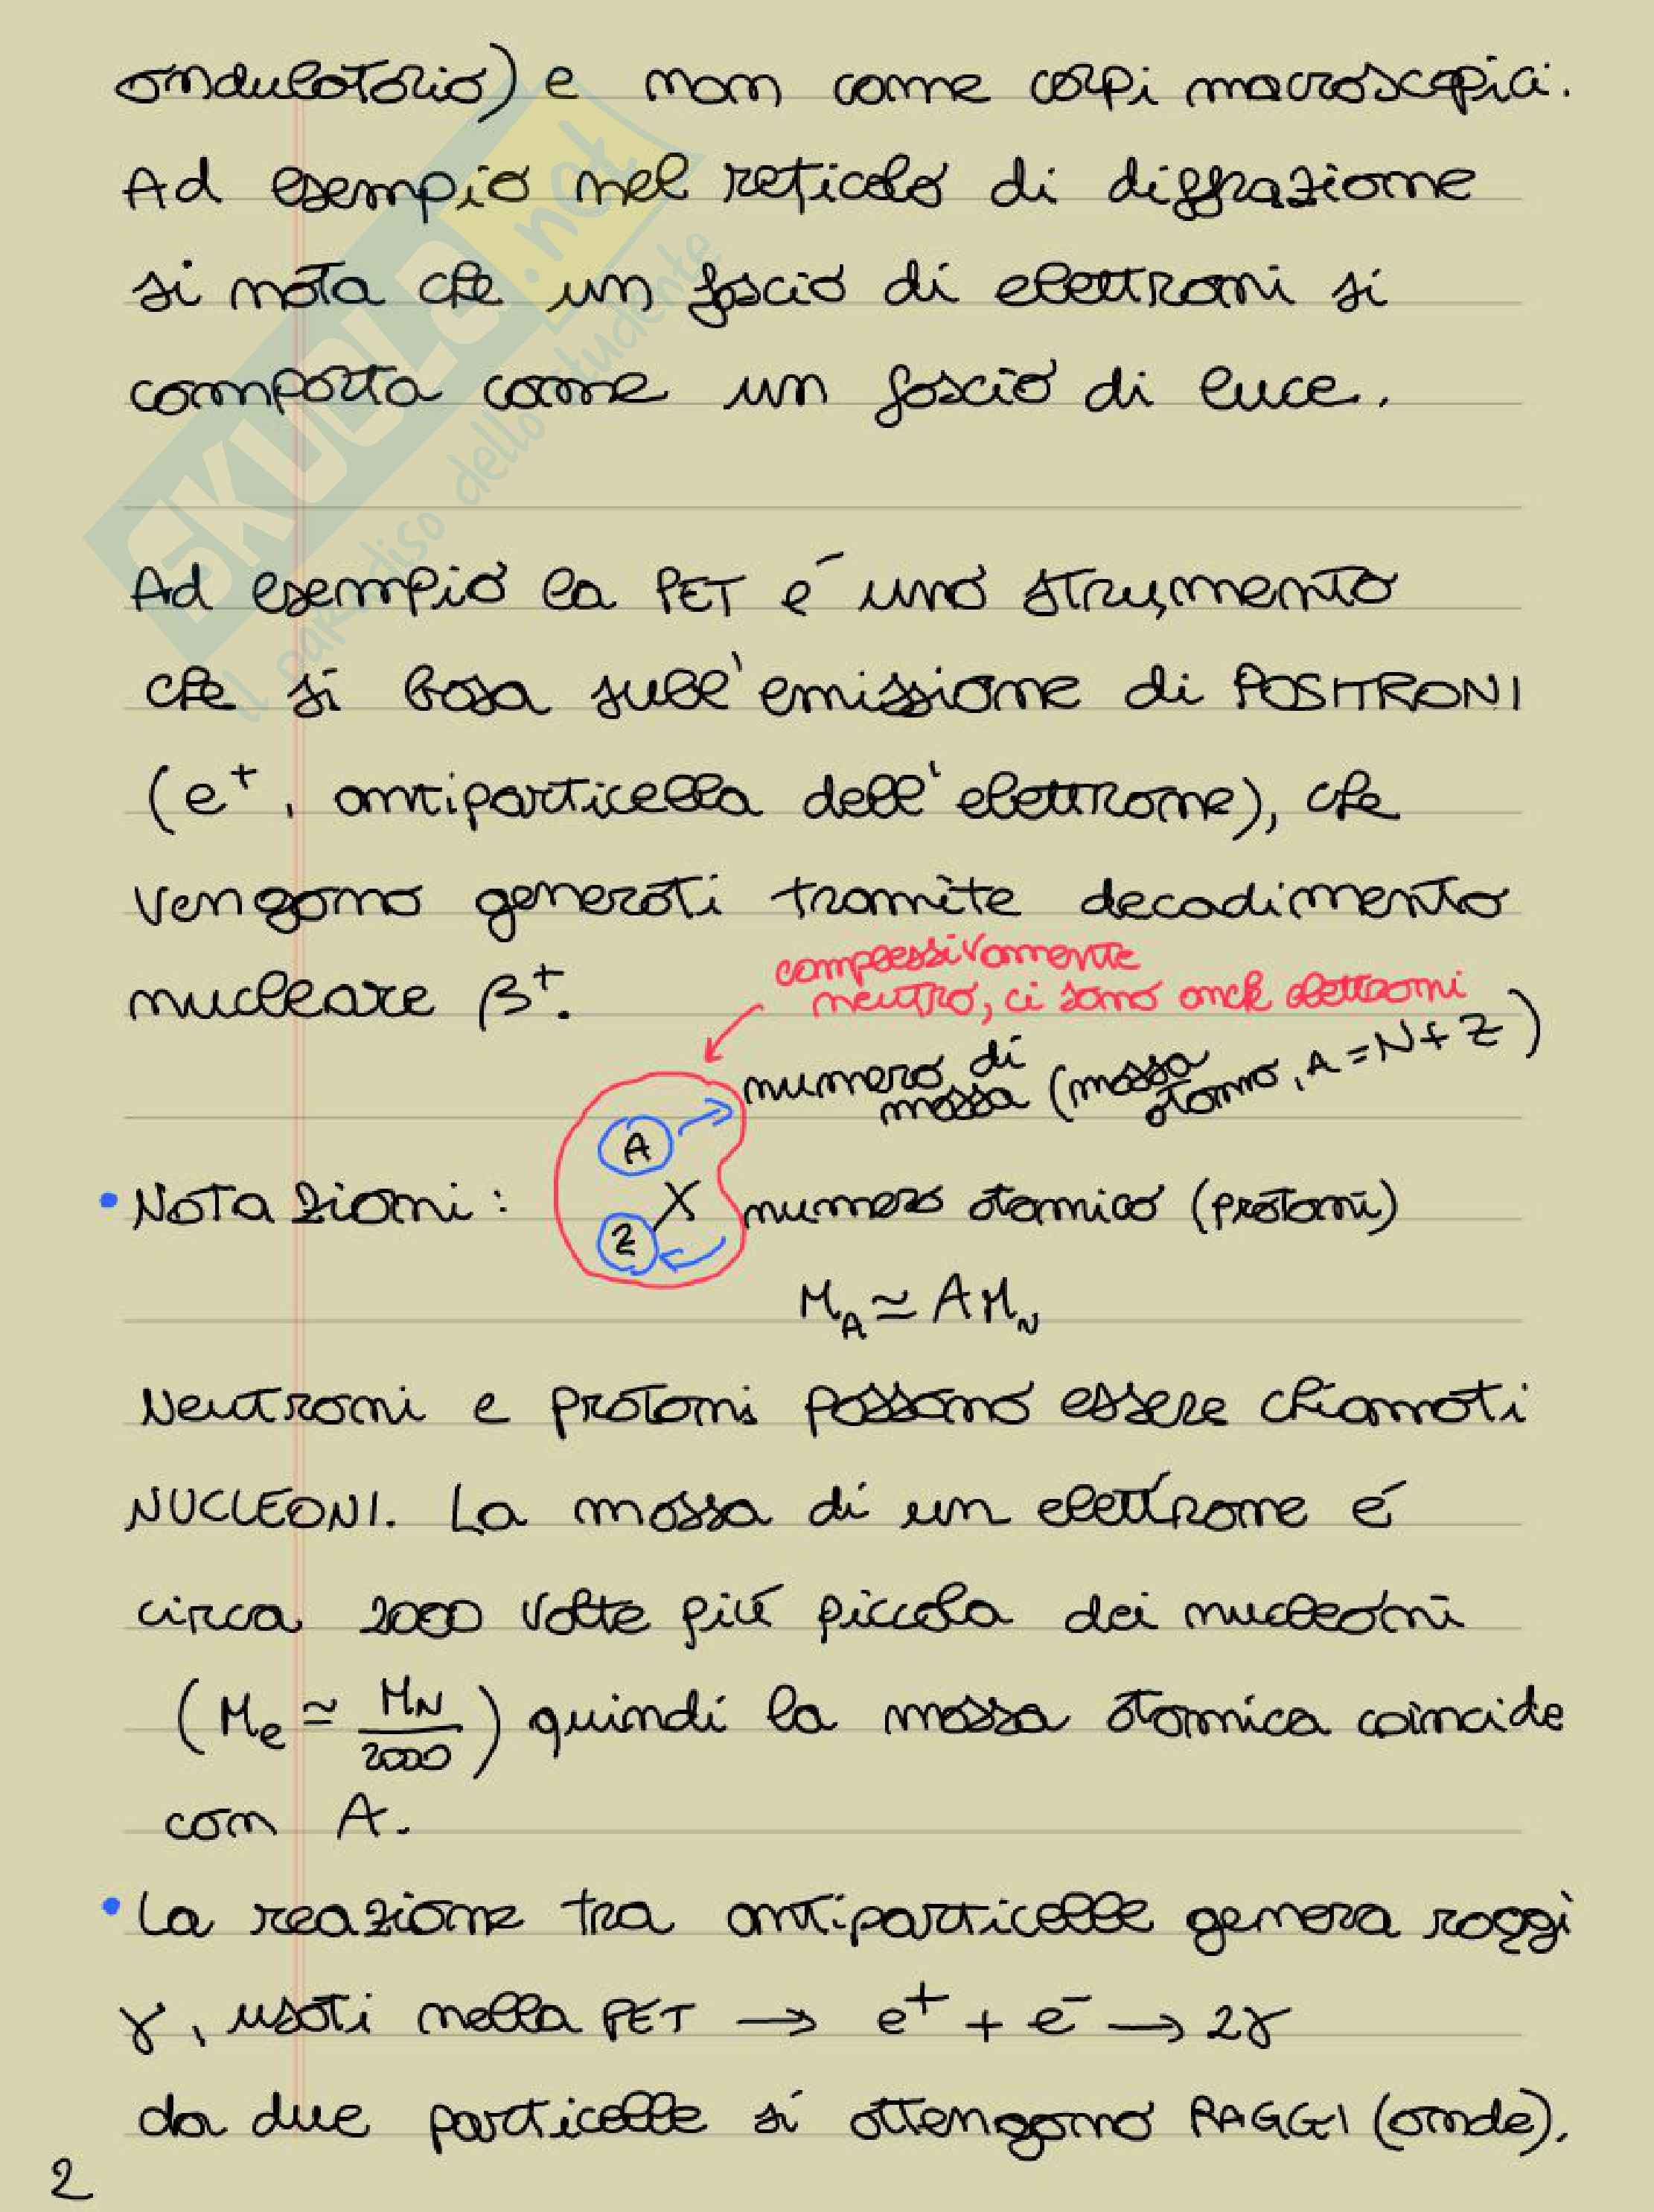 ondulatorio) e non come corpi macroscopici.
Ad esempio nel reticolo di diffrazione
si nota che un fascio di elettroni si
comporta come un fascio di luce.
SKUOLA.net
il paradiso dello studente
Ad esempio la PET é uno strumento
che si basa sull'emissione di POSITRONI
(e⁺, antiparticella dell'elettrone), che
vengono generati tramite decadimento
nucleare β⁺.
complessivamente
neutro, ci sono anche elettroni
numero di
massa (massa
atomo, A=N+Z)
A
• Notazioni: X numero atomico (protoni)
Z
M_A ≃ A M_N
Neutroni e protoni possono essere chiamati
NUCLEONI. La massa di un elettrone é
circa 2000 volte piú piccola dei nucleoni
(M_e ≃ M_N/2000) quindi la massa atomica coincide
con A.
• La reazione tra antiparticelle genera raggi
γ, usati nella PET → e⁺ + e⁻ → 2γ
da due particelle si ottengono RAGGI (onde).
2